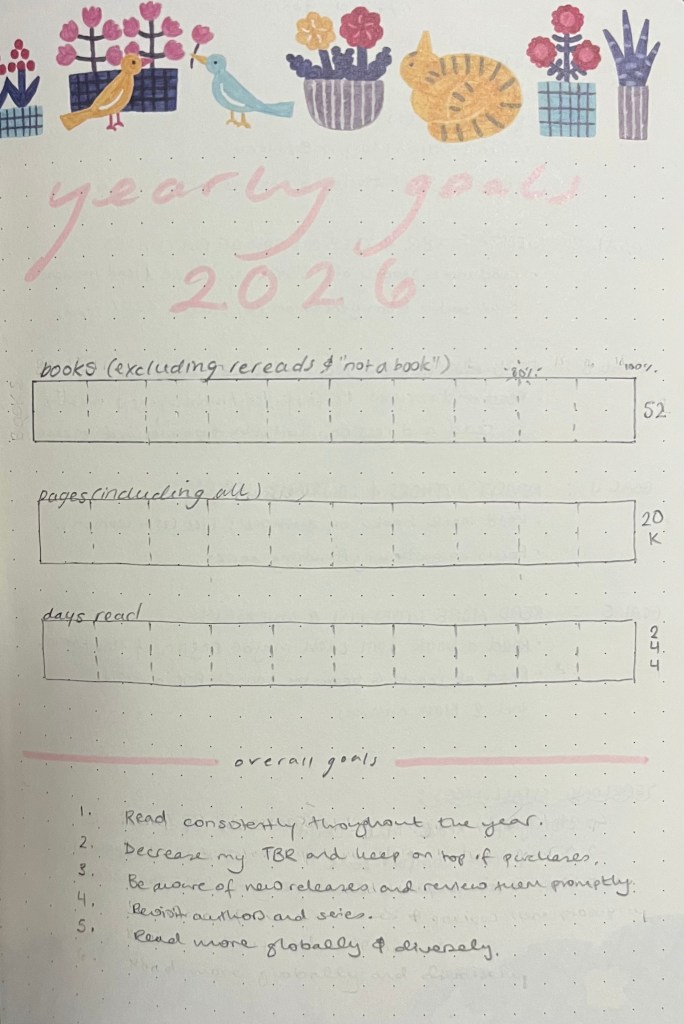 yearly goals
2026
books (excluding rereads & "not a book")
80%
100%
52
pages (including all)
20
K
days read
2
4
4
overall goals
1. Read consistently throughout the year.
2. Decrease my TBR and keep on top of purchases.
3. Be aware of new releases and review them promptly.
4. Revisit authors and series.
5. Read more globally & diversely.